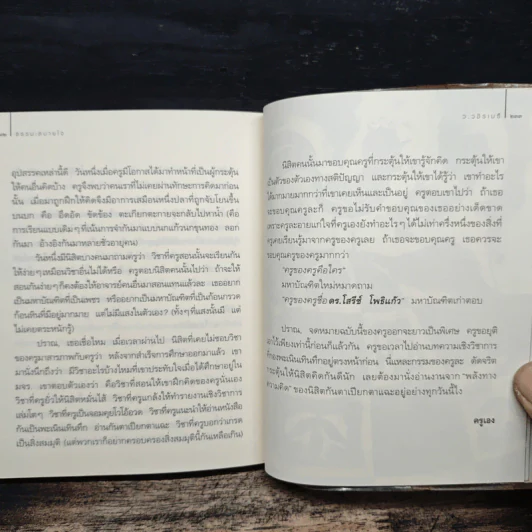 ว.วชิรเมธี
อุปสรรคเหล่านี้ดี วันหนึ่งเมื่อครูมีโอกาสได้มาทำหน้าที่เป็นผู้กระตุ้น
ให้คนอื่นคิดบ้าง ครูจึงพบว่าคนเราที่ไม่เคยผ่านทักษะการคิดมาก่อน
นั้น เมื่อมาถูกฝึกให้คิดจึงมีอาการเสมือนหนึ่งปลาที่ถูกจับโยนขึ้น
บนบก คือ อึดอัด ขัดข้อง ตะเกียกตะกายจะกลับไปหาน้ำ (คือ
การเรียนแบบเดิมๆ ที่เน้นการจำกันมาแบบนกแก้วนกขุนทอง ลอก
กันมา อ้างอิงกันมาหลายชั่วอายุคน)
วันหนึ่งมีนิสิตบางคนมาถามครูว่า วิชาที่ครูสอนนั้นจะเรียนกัน
ให้ง่ายๆ เหมือนวิชาอื่นไม่ได้หรือ ครูตอบนิสิตคนนั้นไปว่า ถ้าจะให้
สอนกันง่ายๆ ก็คงต้องให้อาจารย์คนอื่นมาสอนแทนแล้วละ เธออยาก
เป็นมหาบัณฑิตที่เป็นเพชร หรืออยากเป็นมหาบัณฑิตที่เป็นก้อนกรวด
ก้อนหินที่มีอยู่มากมาย แต่ไม่มีแสงในตัวเอง? (ทั้งๆ ที่แสงนั้นมี แต่
ไม่เคยตระหนักรู้)
ปราณ, เธอเชื่อไหม เวลาผ่านไป นิสิตที่เคยไม่ชอบวิชา
ของครูมาสารภาพกับครูว่า หลังจากสำเร็จการศึกษาออกมาแล้ว เขา
มานึงนึกถึงว่า มีวิชาอะไรบ้างไหมที่เขาประทับใจเมื่อได้ศึกษาอยู่ใน
มจร เขาตอบตัวเองว่า คือวิชาที่สอนให้เขาฝึกคิดของครูนั่นเอง
วิชาที่ครูยั่วให้นิสิตหมั่นไส้ วิชาที่ครูแกล้งให้ทำรายงานเชิงวิชาการ
เล่มโตๆ วิชาที่ครูเป็นจอมคุยโวโอ้อวด วิชาที่ครูแนะนำให้อ่านหนังสือ
กันเป็นพะเนินเทินทึก อ่านกันตาเปียกตาแฉะ วิชาที่ครูบอกว่าเกรด
เป็นสิ่งสมมุติ (แต่พวกเราก็อยากครอบครองสิ่งสมมุตินี้กันเหลือเกิน)
นิสิตคนนั้นมาขอบคุณครูที่กระตุ้นให้เขารู้จักคิด กระตุ้นให้เขา
เป็นตัวของตัวเองทางสติปัญญา และกระตุ้นให้เขาได้รู้ว่า เขาทำอะไร
ได้มากมายมากกว่าที่เขาเคยเห็นและเป็นอยู่ ครูตอบเขาไปว่า ถ้าเธอ
จะขอบคุณครูละก็ ครูขอไม่รับคำขอบคุณของเธออย่างเด็ดขาด
เพราะครูละอายแก่ใจที่ครูเองยังทำอะไรๆ ได้ไม่เท่าครึ่งหนึ่งของสิ่งที่
ครูเคยเรียนรู้มาจากครูของครูเลย ถ้าเธอจะขอบคุณครู เธอควรจะ
ขอบคุณครูของครูมากกว่า
"ครูของครูคือใคร"
มหาบัณฑิตใหม่หมาดถาม
"ครูของครูชื่อ ดร.โสรีช์ โพธิแก้ว" มหาบัณฑิตเก่าตอบ
ปราณ, จดหมายฉบับนี้ของครูออกจะยาวเป็นพิเศษ ครูขอยุติ
เอาไว้เพียงเท่านี้ก่อนก็แล้วกัน ครูขอเวลาไปอ่านบทความเชิงวิชาการ
ที่กองพะเนินเทินทึกอยู่ตรงหน้าก่อน นี่แหละกรรมของครูละ ดัดจริต
กระตุ้นให้นิสิตคิดกันดีนัก เลยต้องมานั่งอ่านงานจาก "พลังทาง
ความคิด" ของนิสิตกันตาเปียกตาแฉะอยู่อย่างทุกวันนี้ไง
ครูเอง